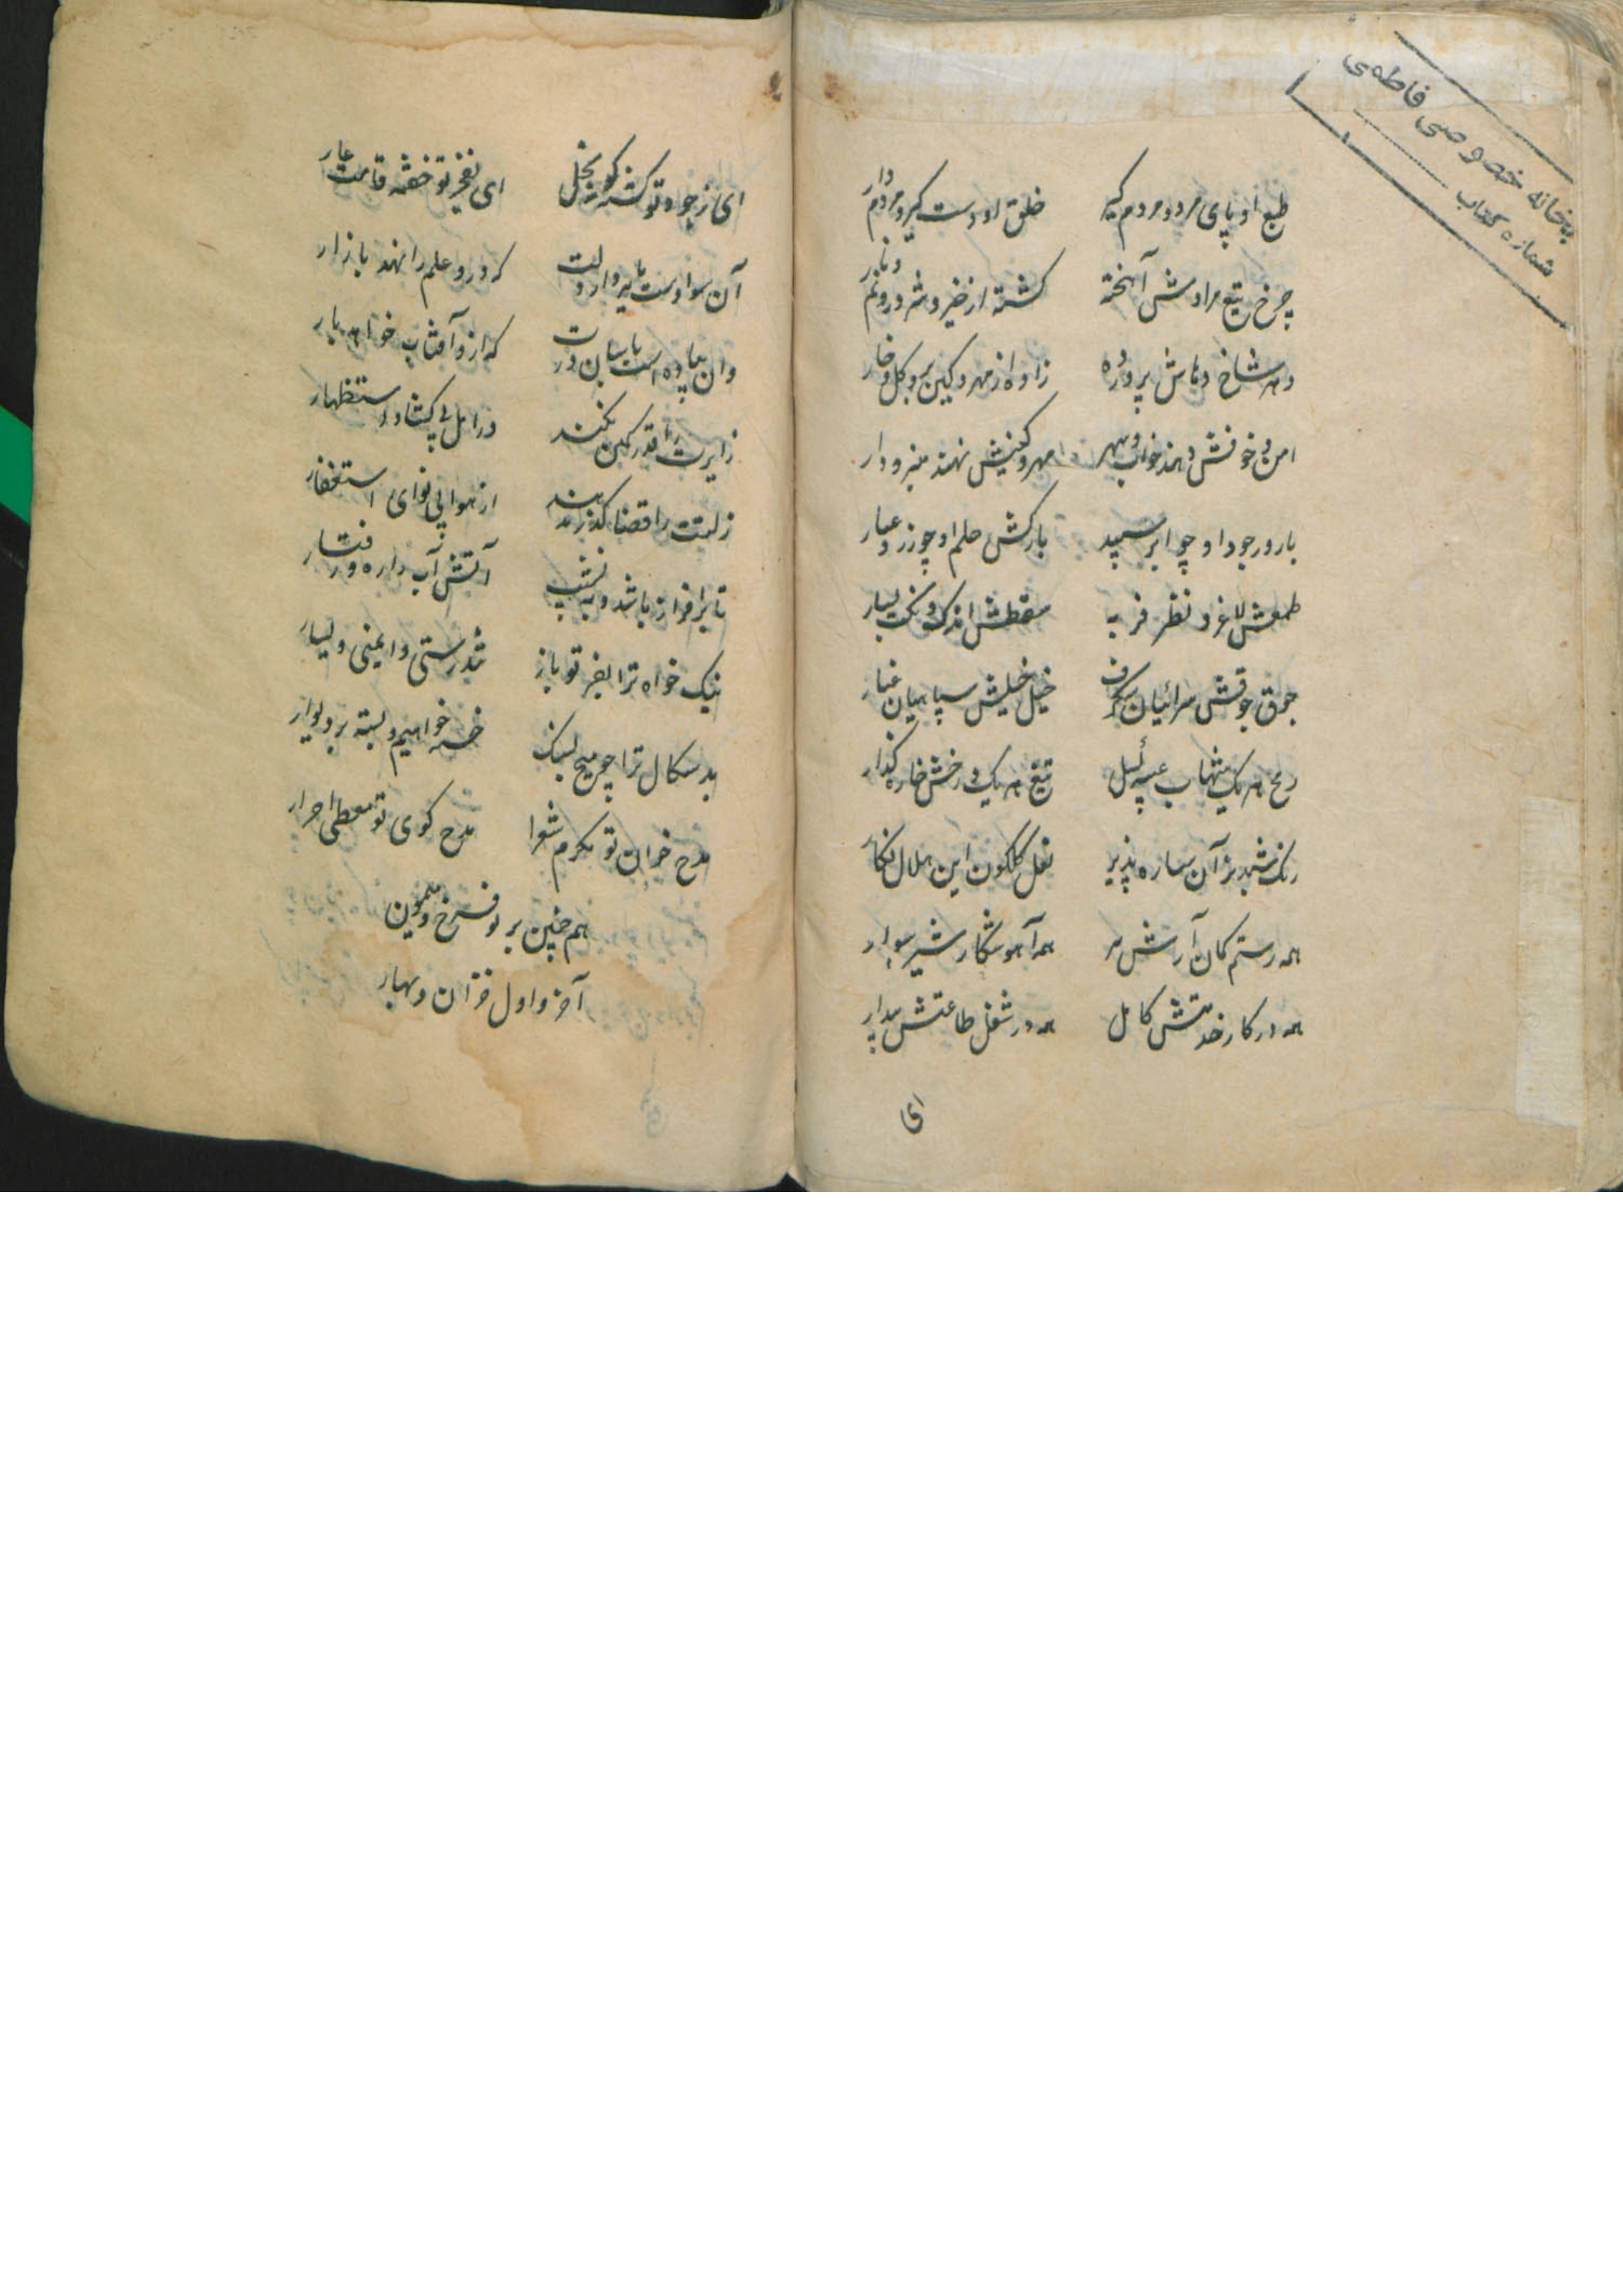 کتابخانه خصوصی فاطمی
شماره کتاب
طبع او پای مرد و مردم گیر خلق او دست گیر و مردم دار
چرخ تیغ مرادش آهخته گشته از خیر و شر درو نم و نار
دهر شاخ دهاش پرورده زاده از مهر و کین بر و گل و خار
امن و خوفش دهند خواب و سهر مهر و کینش نهند منبر و دار
بارور جود او چو ابر سپید بارکش حلم او چو زر و عیار
طمعش لاغر و نظر فربه سقطش اندک و نکت بسیار
جوق جوقش سرائیان شگرف خیل خیلش سپاهیان غیار
رمح هر یک شهاب گذار تیغ هر یک درخش خاره گذار
رنگ شبدیز آن ستاره پذیر نعل گلگون این هلال نگار
همه رستم کمان آرش تیر همه آهو شکار شیر سوار
همه در کار خدمتش کامل همه در شغل طاعتش بیدار
ای
ای ز جود تو گشته گو بخل ای بفخر تو خفته قامت عار
آن سوادست بایر و دولت که درو علم را نهند بازار
وان پیاده است پاسبان درت که ازو آفتاب خواهد بار
زایرت را قدر کمین نکند در امل بی گشاد و استظهار
زلتت را قضا گذر ندهد از هوا بی نوای استغفار
تا برافراز باشد و به نشیب آتش آب دار و رفتار
نیک خواه ترا بفر تو باز تندرستی و ایمنی و یسار
بد سگال ترا چو میخ لیک خسته خواهیم و بسته بر دیوار
مدح خوان تو مکرم شعرا مدح گوی تو معطی احرار
هم چنین بر تو فرخ و میمون
آخر و اول خزان و بهار